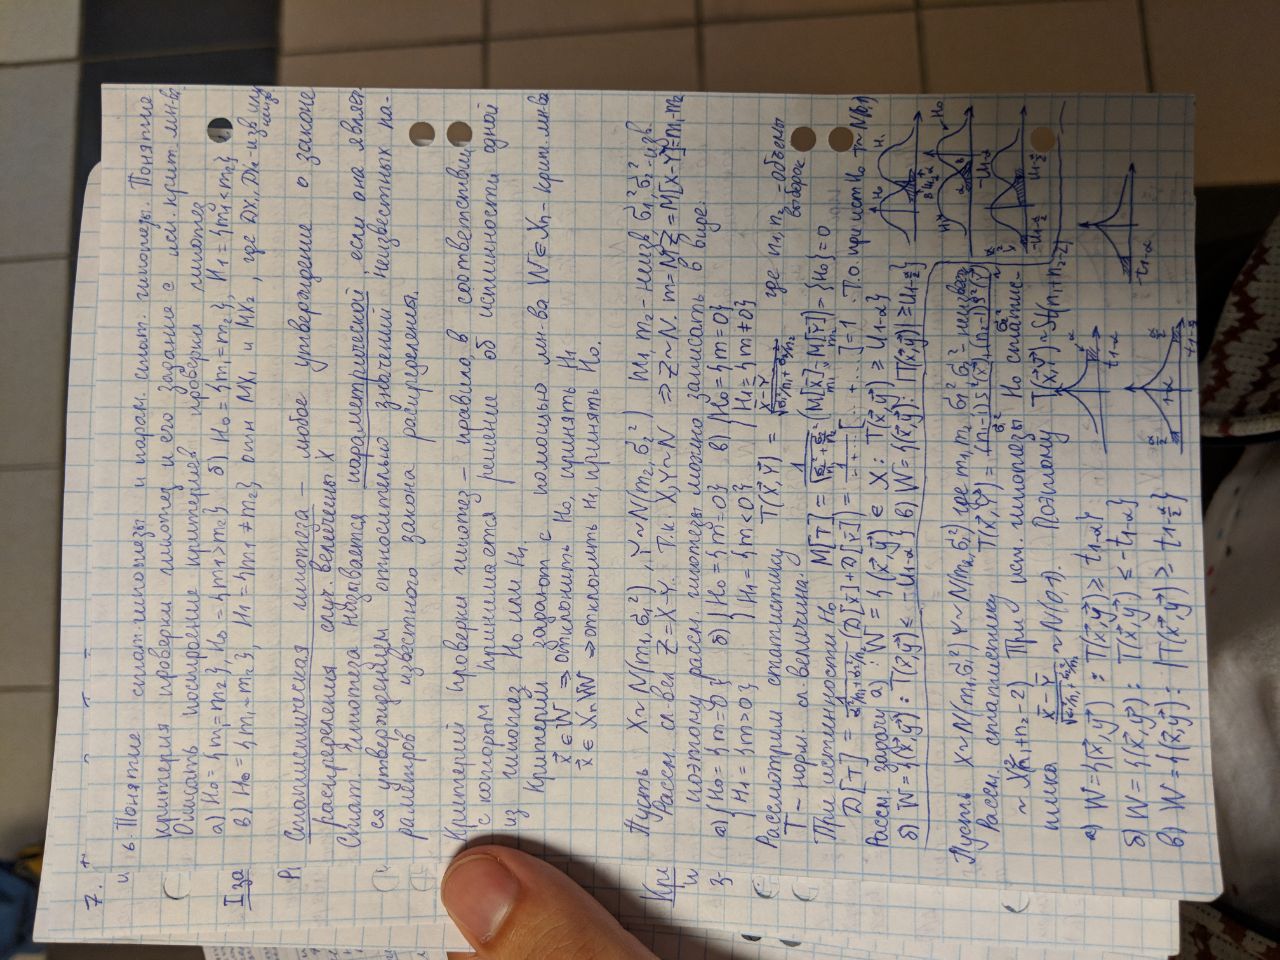 7.
6. Понятие стат. гипотезы и парам. стат. гипотезы. Понятие
критерия проверки гипотез и его задание с исп. крит. мн-ва.
Описать построение критериев проверки гипотез
а) H₀ = {m₁=m₂}, H₀ = {m1>m₂} б) H₀ = {m₁=m₂}, H₁ = {m1<m₂}
I за
в) H₀ = {m₁=m₂}, H₁ = {m1≠m₂} отн MX₁ и MX₂, где DX₁, DX₂-изв или
неизв.
Статистическая гипотеза – любое утверждение о законе
распределения случ. величены X
Стат. гипотеза называется параметрической, если она являет-
ся утверждением относительно значений неизвестных па-
раметров известного закона распределены.
Критерий проверки гипотез – правило, в соответствии
с которым принимается решение об истинности одной
из гипотез H₀ или H₁.
Критерий задают с помощью мн-ва W∈Xn – крит. мн-ва
x⃗ ∈ W ⇒ отклонить H₀, принять H₁
x⃗ ∈ Xn\W ⇒ отклонить H₁, принять H₀.
Пусть X~N(m₁,σ₁²), Y~N(m₂,σ₂²) m₁, m₂ – неизв, σ₁², σ₂²-изв.
Кри
Рассм. сл. вел Z=X-Y. Т.к. X,Y~N ⇒ Z~N. m=MZ=M[X-Y]=m₁-m₂
поэтому рассм. гипотезы можно записать в виде:
а) {H₀ = {m=0} б) {H₀ = {m=0} в) {H₀ = {m=0}
H₁ = {m>0} H₁ = {m<0} H₁ = {m≠0}
Рассмотрим статистику T(X⃗,Y⃗) = (X̄-Ȳ)/√(σ₁²/n₁+σ₂²/n₂) где n₁,n₂ – объемы
выборок
T – норм. сл. величина.
При истинности H₀ M[T] = 1/√(σ₁²/n₁+σ₂²/n₂) (M[X̄]-M[Ȳ]) = {H₀} = 0
m₁ m₂
D[T] = 1/(σ₁²/n₁+σ₂²/n₂) (D[X̄]+D[Ȳ]) = 1/(…+…) [… + …] = 1. Т.о. при ист H₀ T~N(0,1)
Рассм. задачу а): W = {(x⃗,y⃗) ∈ X : T(x⃗,y⃗) ≥ U1-α}
H₀ H₁
б) W = {(x⃗,y⃗) : T(x⃗,y⃗) ≤ -U1-α} в) W = {(x⃗,y⃗) : |T(x⃗,y⃗)| ≥ U1-α/2}
H₁ H₀
Пусть X~N(m₁,σ₁²) Y~N(m₂,σ₂²) где m₁,m₂ σ₁² σ₂² – неизвест
-U1-α
Рассм. статистику T(X⃗,Y⃗) = (n₁-1)S²(X⃗)/σ₁² + (n₂-1)S²(Y⃗)/σ₂²
~ X²(n₁+n₂-2) При ист. гипотезы H₀ статис-
-U1-α/2 U1-α/2
тика (X̄-Ȳ)/√(σ₁²/n₁+σ₂²/n₂) ~ N(0,1). Поэтому T(X⃗,Y⃗)~St(n₁+n₂-2)
а) W = {(x⃗,y⃗) : T(x⃗,y⃗) ≥ t1-α}
α
t1-α
б) W = {(x⃗,y⃗) : T(x⃗,y⃗) ≤ -t1-α}
-t1-α
в) W = {(x⃗,y⃗) : |T(x⃗,y⃗) ≥ t1-α/2}
α/2 1-α α/2
t1-α/2